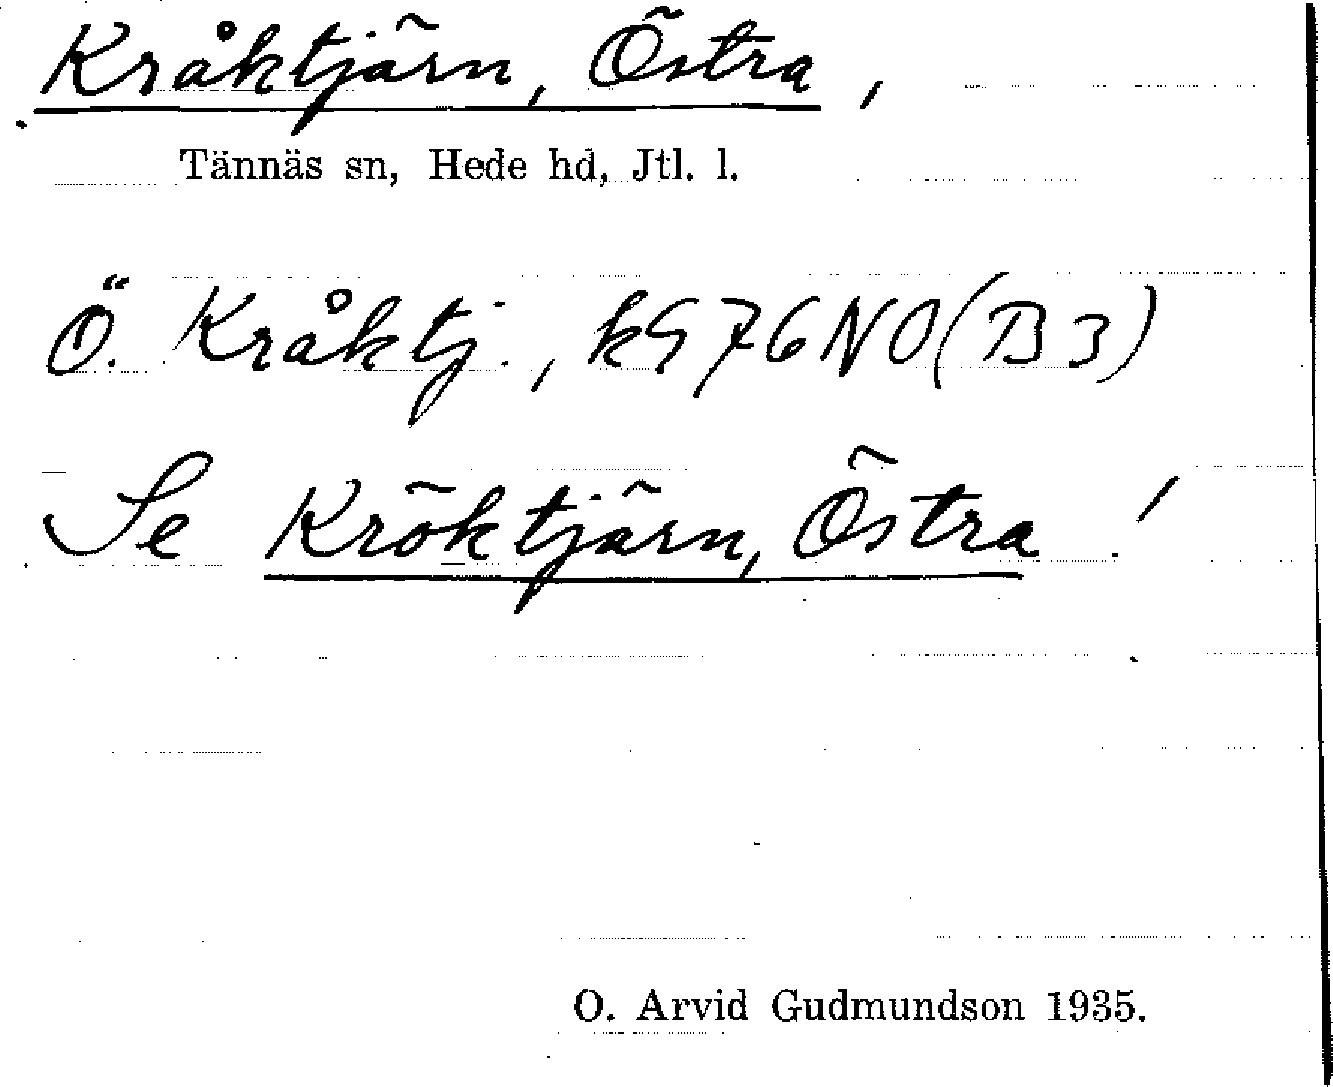 Kråktjärn, Östra,
Tännäs sn, Hede hd, Jtl. l.
Ö. Kråktj., kG76NO(B3)
Se Kröktjärn, Östra!
O. Arvid Gudmundson 1935.